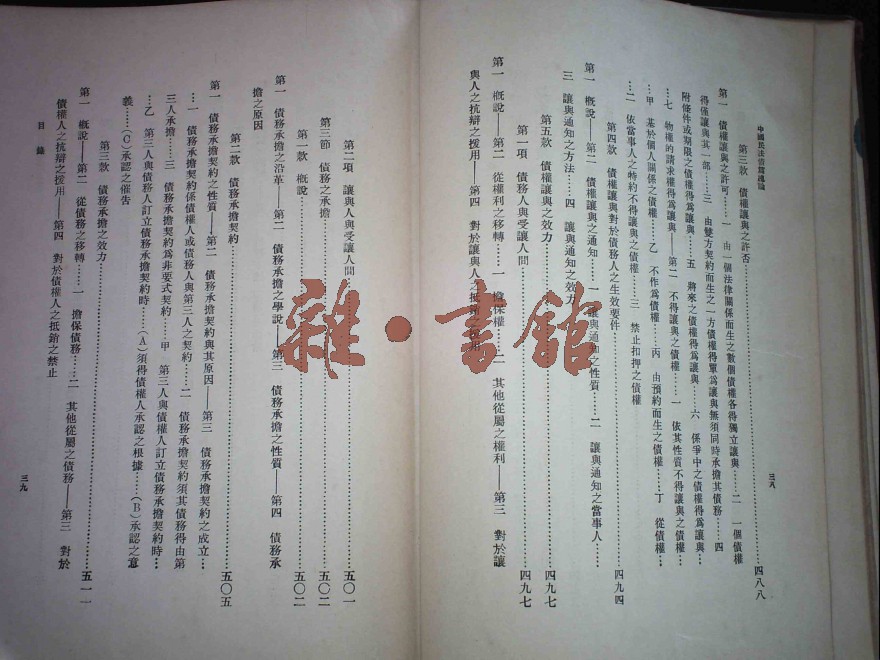 中國民法債篇總論
三八
第三款　債權讓與之許否……四八八
第一　債權讓與之許可……一　由一個法律關係而生之數個債權各得獨立讓與……二　一個債權
得僅讓與其一部……三　由雙方契約而生之一方債權得單爲讓與無須同時承擔其債務……四
附條件或期限之債權得爲讓與……五　將來之債權得爲讓與……六　係爭中之債權得爲讓與…
…七　物權的請求權得爲讓與——第二　不得讓與之債權……一　依其性質不得讓與之債權…
…甲　基於個人關係之債權……乙　不作爲債權……丙　由預約而生之債權……丁　從債權…
…二　依當事人之特約不得讓與之債權……三　禁止扣押之債權
第四款　債權讓與對於債務人之生效要件……四九四
第一　概說——第二　債權讓與之通知……一　讓與通知之性質……二　讓與通知之當事人……
三　讓與通知之方法……四　讓與通知之效力
第五款　債權讓與之效力……四九七
第一項　債務人與受讓人間……四九七
第一　概說——第二　從權利之移轉……一　擔保權……二　其他從屬之權利——第三　對於讓
與人之抗辯之援用——第四　對於讓與人之抵銷之援用
第二項　讓與人與受讓人間……五〇一
第三節　債務之承擔……五〇二
第一款　概說……五〇二
第一　債務承擔之沿革——第二　債務承擔之學說——第三　債務承擔之性質——第四　債務承
擔之原因
第二款　債務承擔契約……五〇五
第一　債務承擔契約之性質——第二　債務承擔契約與其原因——第三　債務承擔契約之成立…
…一　債務承擔契約係債權人或債務人與第三人之契約……二　債務承擔契約須其債務得由第
三人承擔……三　債務承擔契約爲非要式契約……甲　第三人與債權人訂立債務承擔契約時…
…乙　第三人與債務人訂立債務承擔契約時……（A）須得債權人承認之根據……（B）承認之意
義……（C）承認之催告
第三款　債務承擔之效力……五一一
第一　概說——第二　從債務之移轉……一　擔保債務……二　其他從屬之債務——第三　對於
債權人之抗辯之援用——第四　對於債權人之抵銷之禁止
目錄
三九
雜·書館